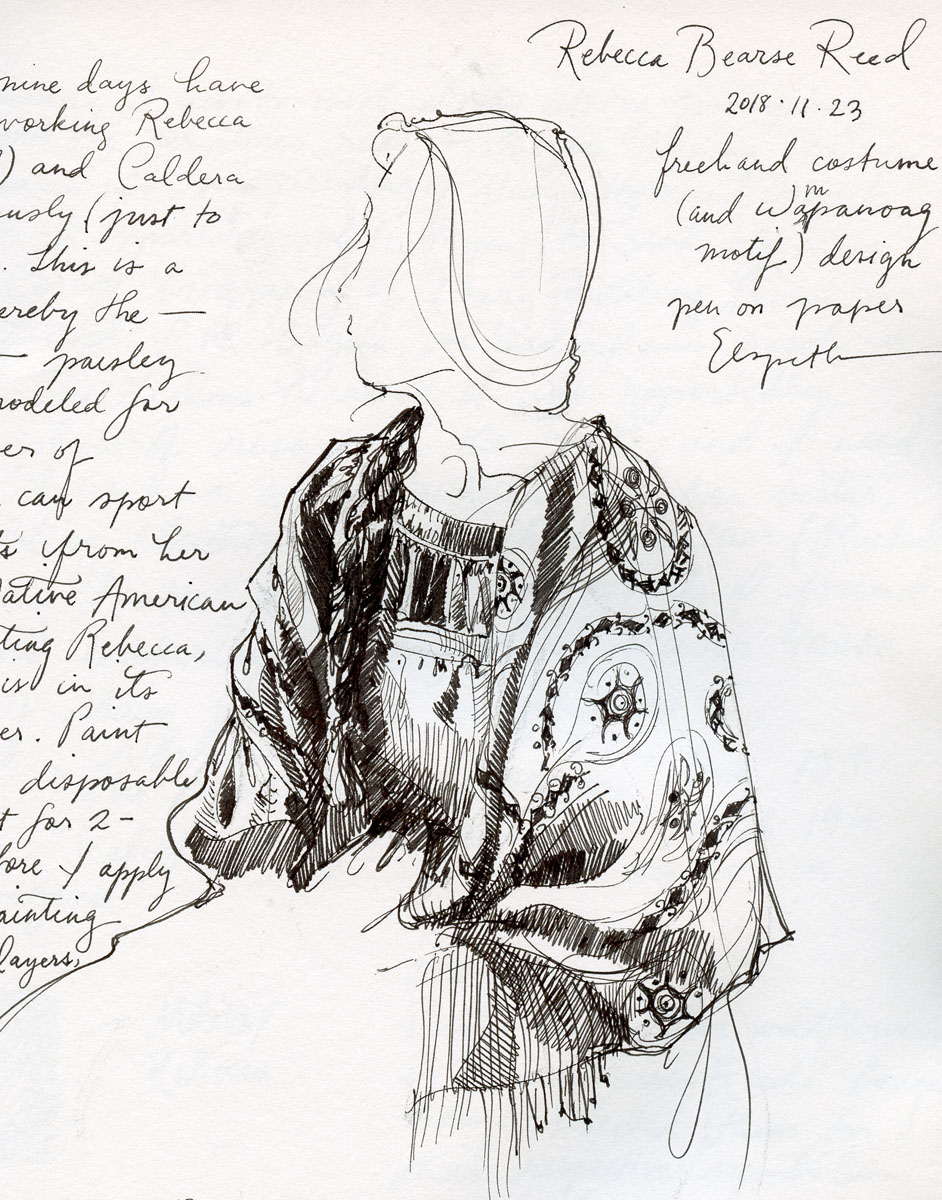 Rebecca Bearse Reed
2018·11·23
freehand costume
(and Wampanoag
motif) design
pen on paper
Elspeth
nine days have
working Rebecca
) and Caldera
ously (just to
. This is a
ereby the —
— paisley
modeled for
er of
can sport
ts from her
Native American
ting Rebecca,
is in its
er. Paint
disposable
t for 2-
fore I apply
painting
layers,